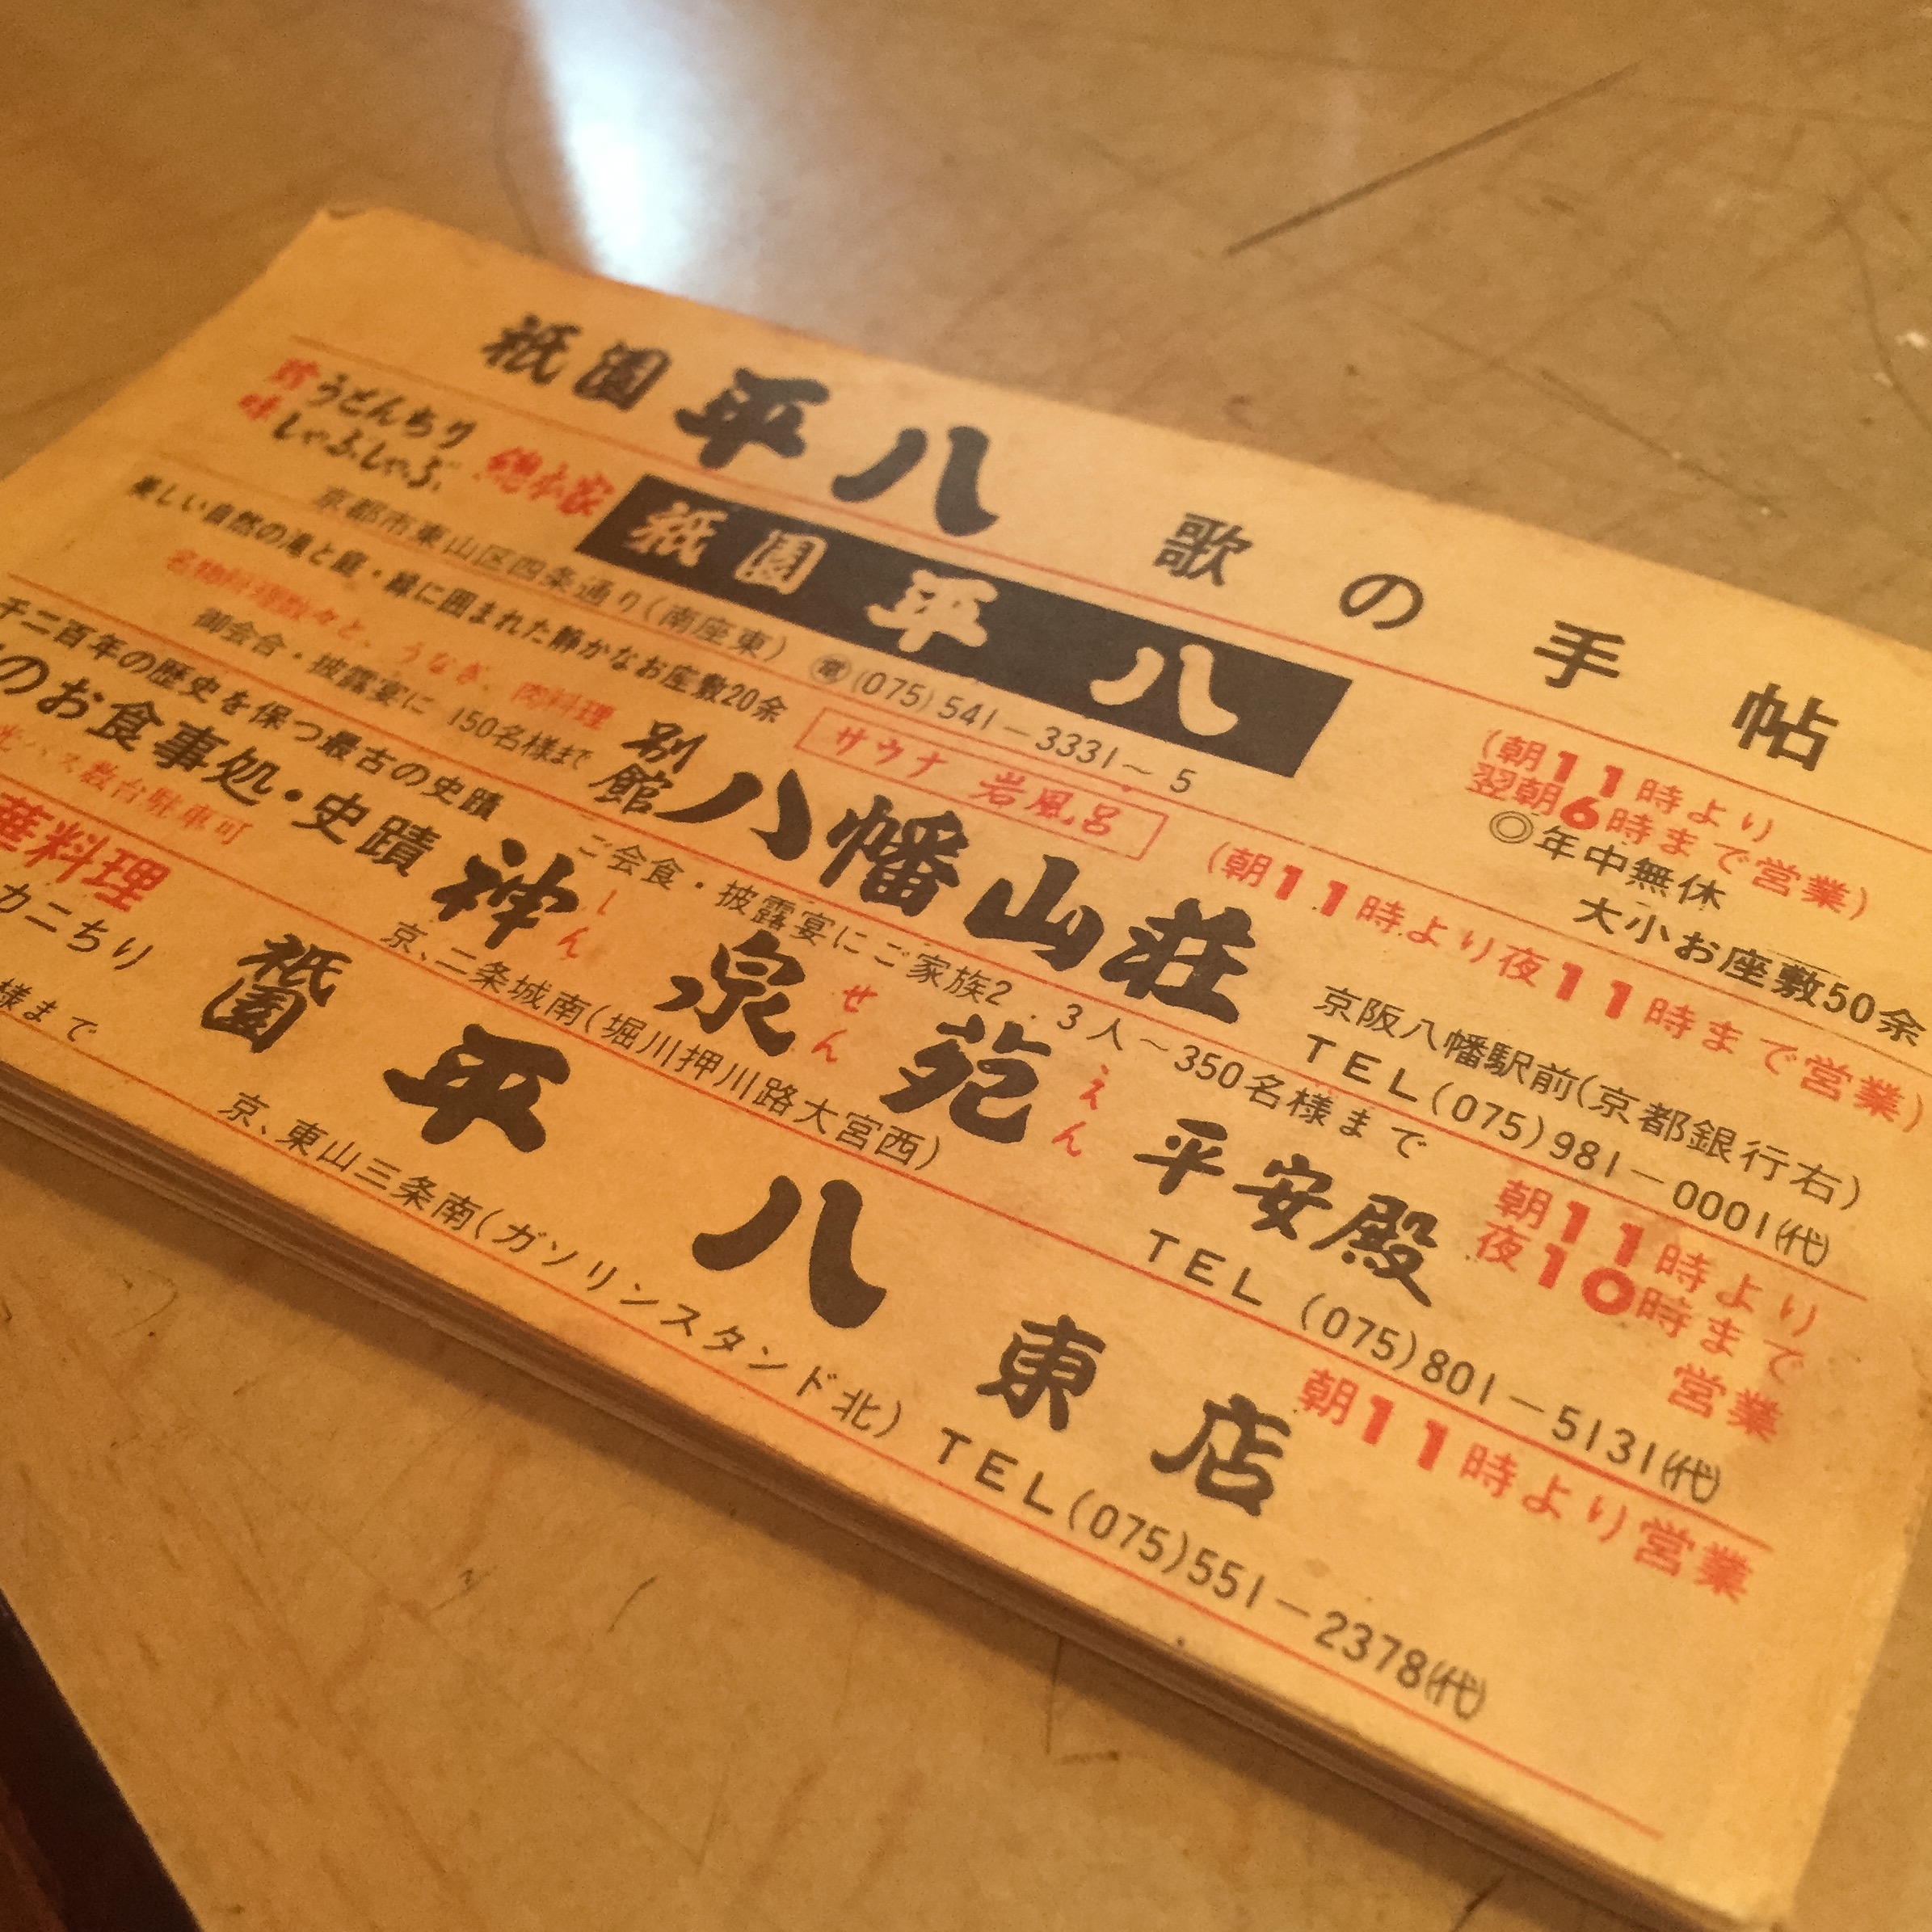 祇園 平八 歌の手帖
うどんちり
しゃぶしゃぶ
總本家
祇園 平八
(朝11時より
翌朝6時まで営業)
◎年中無休
大小お座敷50余
京都市東山区四条通り(南座東) ㊩(075)541-3331~5
美しい自然の滝と庭・緑に囲まれた静かなお座敷20余
名物料理数々と、うなぎ、肉料理
御会合・披露宴に 150名様まで
サウナ 岩風呂
(朝11時より夜11時まで営業)
別館 八幡山荘
京阪八幡駅前(京都銀行右)
TEL(075)981-0001(代)
千二百年の歴史を保つ最古の史蹟
ご会食・披露宴にご家族2.3人~350名様まで
のお食事処・史蹟 神泉苑 平安殿
しん せん えん
朝11時より
夜10時まで
営業
バス数台駐車可
京、二条城南(堀川押川路大宮西)
TEL (075)801-5131(代)
華料理
カニちり
様まで
祇園 平八 東店
朝11時より営業
京、東山三条南(ガソリンスタンド北) TEL(075)551-2378(代)